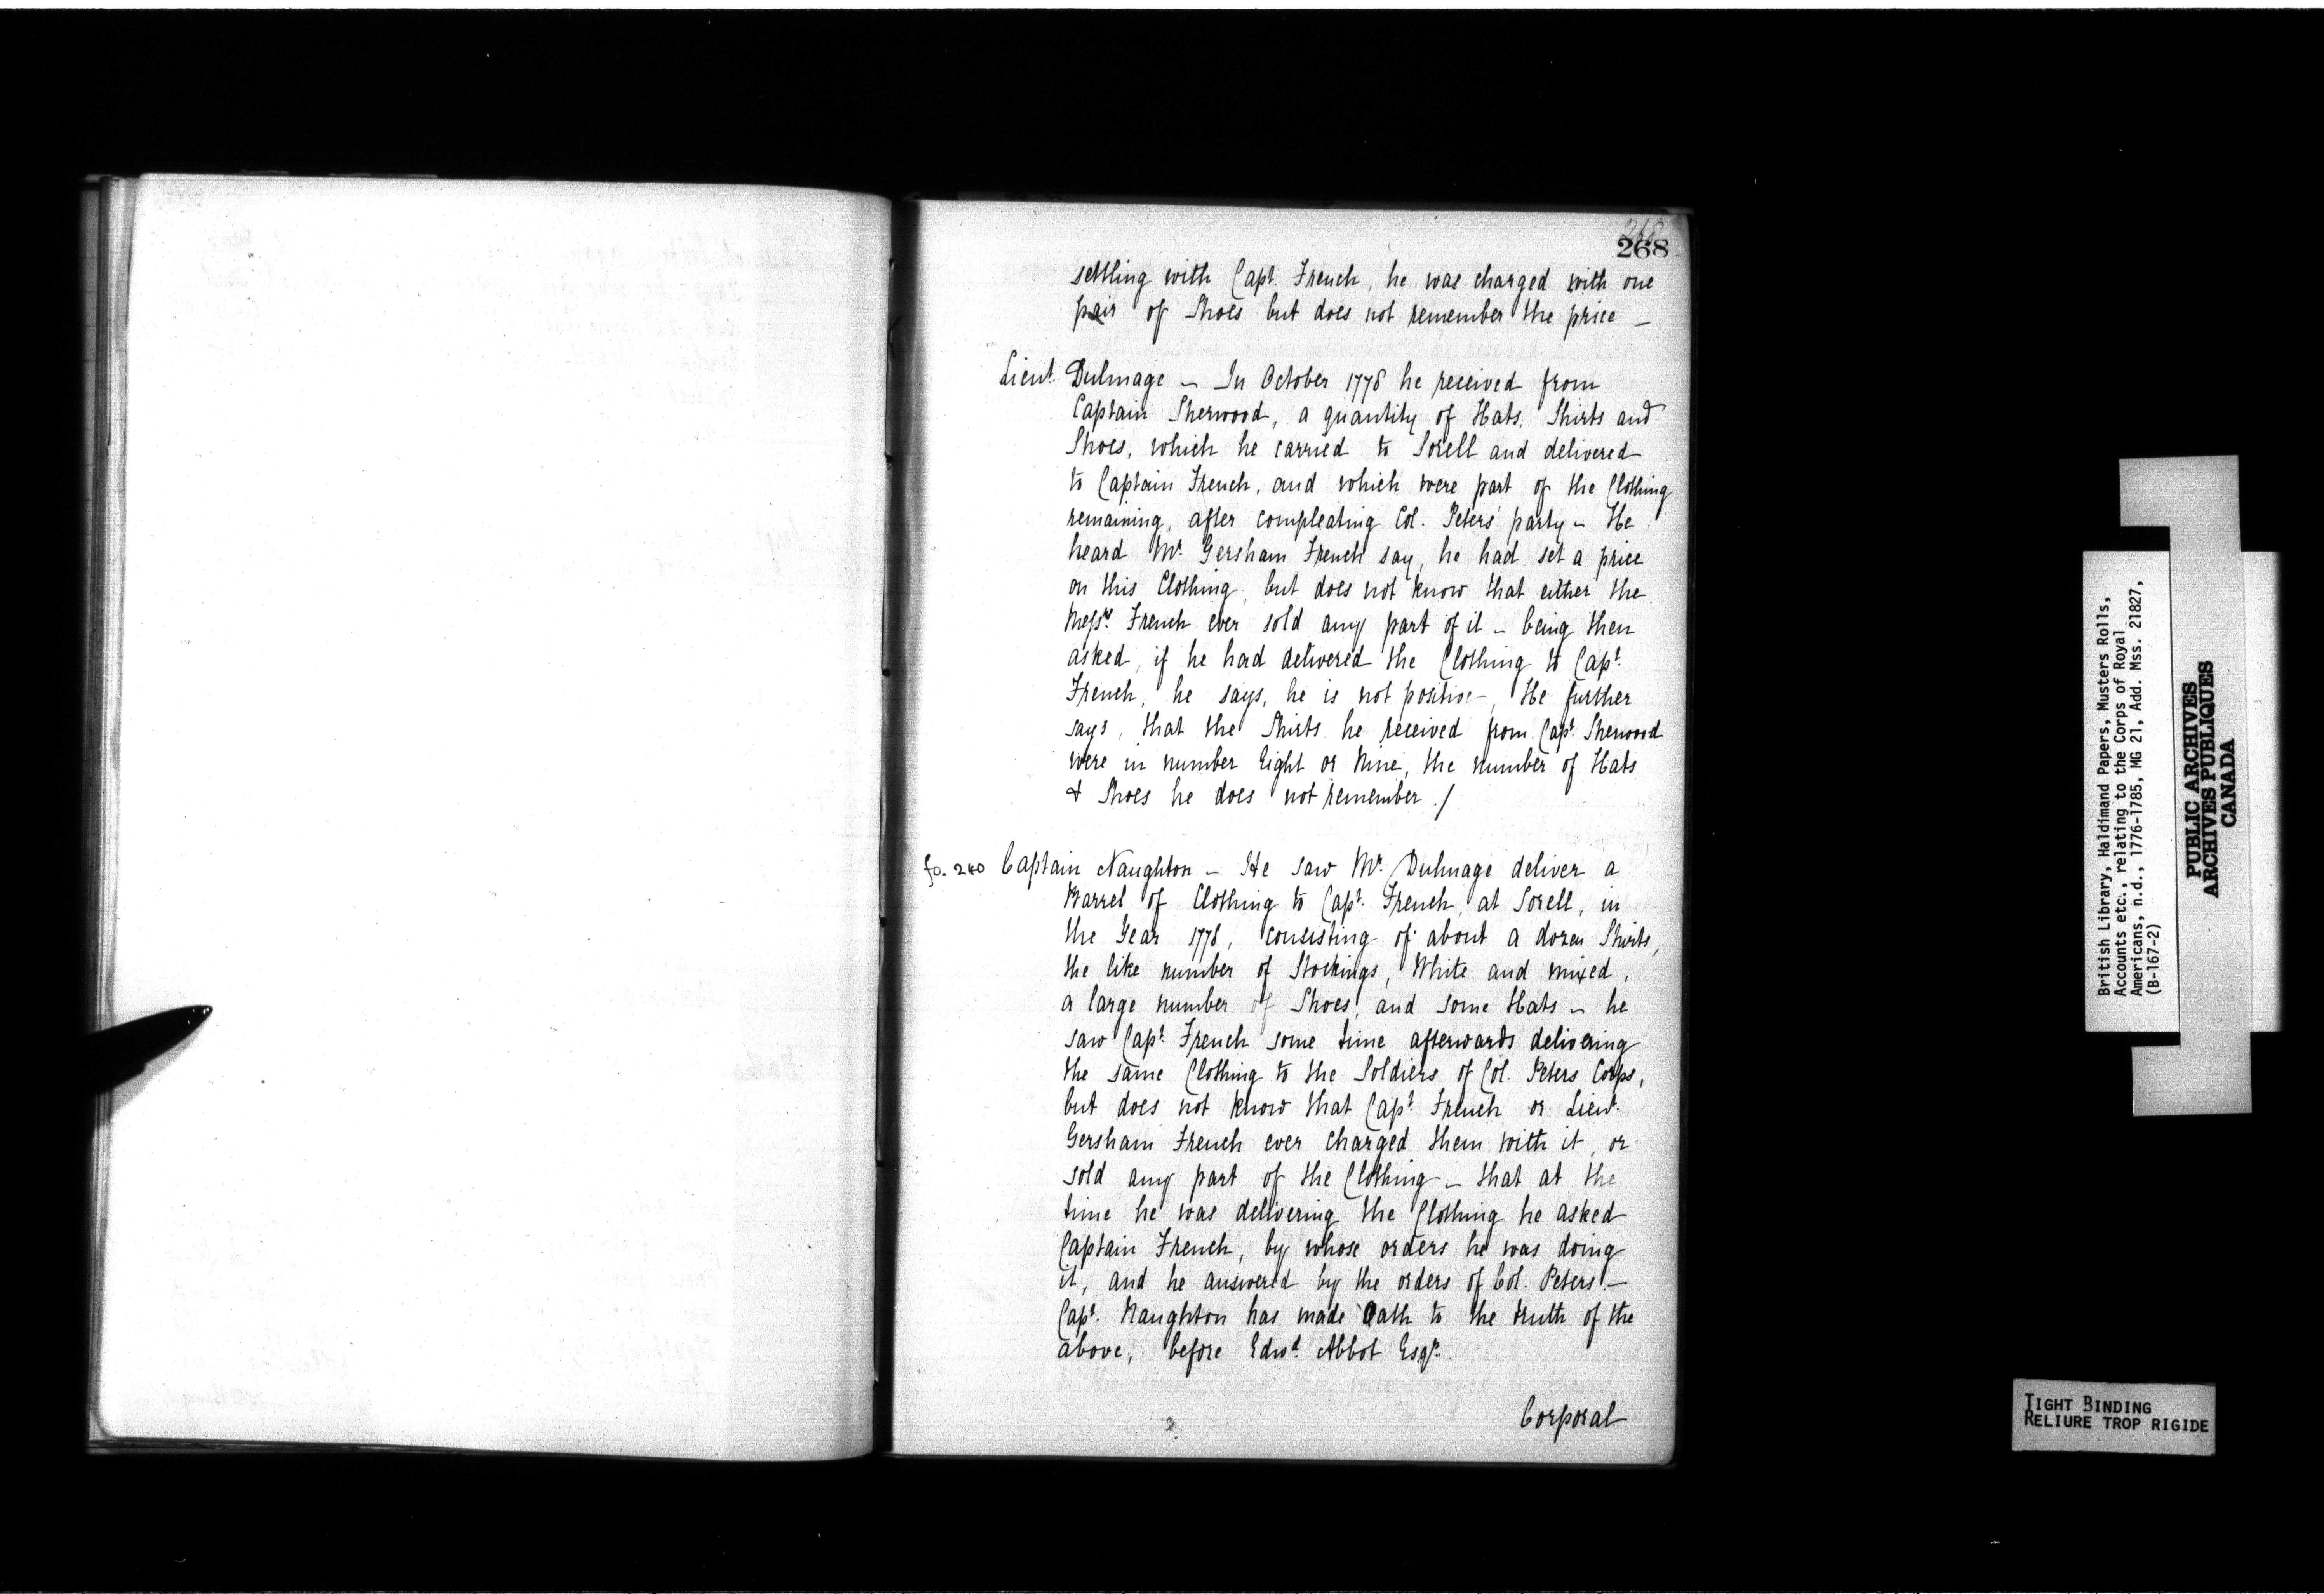 268
268
settling with Capt. French, he was charged with one
pair of Shoes but does not remember the price —
Lieut. Dulmage — In October 1778 he received from
Captain Sherwood, a quantity of Hats, Shirts and
Shoes, which he carried to Sorell and delivered
to Captain French, and which were part of the Clothing
remaining, after compleating Col. Peters' party — He
heard Mr. Gersham French say, he had set a price
on this Clothing, but does not know that either the
Messrs. French ever sold any part of it — being then
asked, if he had delivered the Clothing to Capt.
French, he says, he is not positive —, He further
says, that the Shirts he received from Capt. Sherwood
were in number Eight or Nine, the number of Hats
& Shoes he does not remember ./
fo. 240 Captain Naughton — He saw Mr. Dulmage deliver a
Barrel of Clothing to Capt. French, at Sorell, in
the Year 1778, consisting of about a dozen Shirts,
the like number of Stockings, White and mixed,
a large number of Shoes, and some Hats — he
saw Capt. French some time afterwards delivering
the same Clothing to the Soldiers of Col. Peters Corps,
but does not know that Capt. French or Lieut.
Gersham French ever charged them with it, or
sold any part of the Clothing — that at the
time he was delivering the Clothing he asked
Captain French, by whose orders he was doing
it, and he answered by the orders of Col. Peters. —
Capt. Naughton has made Oath to the truth of the
above, before Edwd. Abbot Esqr.
Corporal
British Library, Haldimand Papers, Musters Rolls,
Accounts etc., relating to the Corps of Royal
Americans, n.d., 1776-1785, MG 21, Add. Mss. 21827,
(B-167-2)
PUBLIC ARCHIVES
ARCHIVES PUBLIQUES
CANADA
TIGHT BINDING
RELIURE TROP RIGIDE